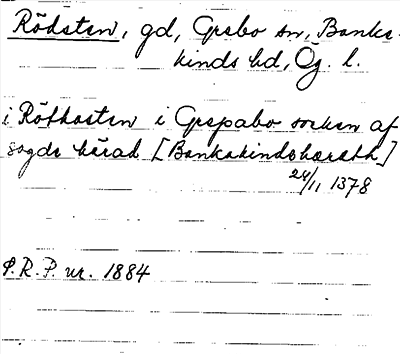 Rödsten, gd, Grebo sn, Banke-
kinds hd, Ög. l.
i Rötkosten i Grepabo sockn af
sagde härad [Bankakindshæradh]
24/11 1378
P.R.P. nr. 1884